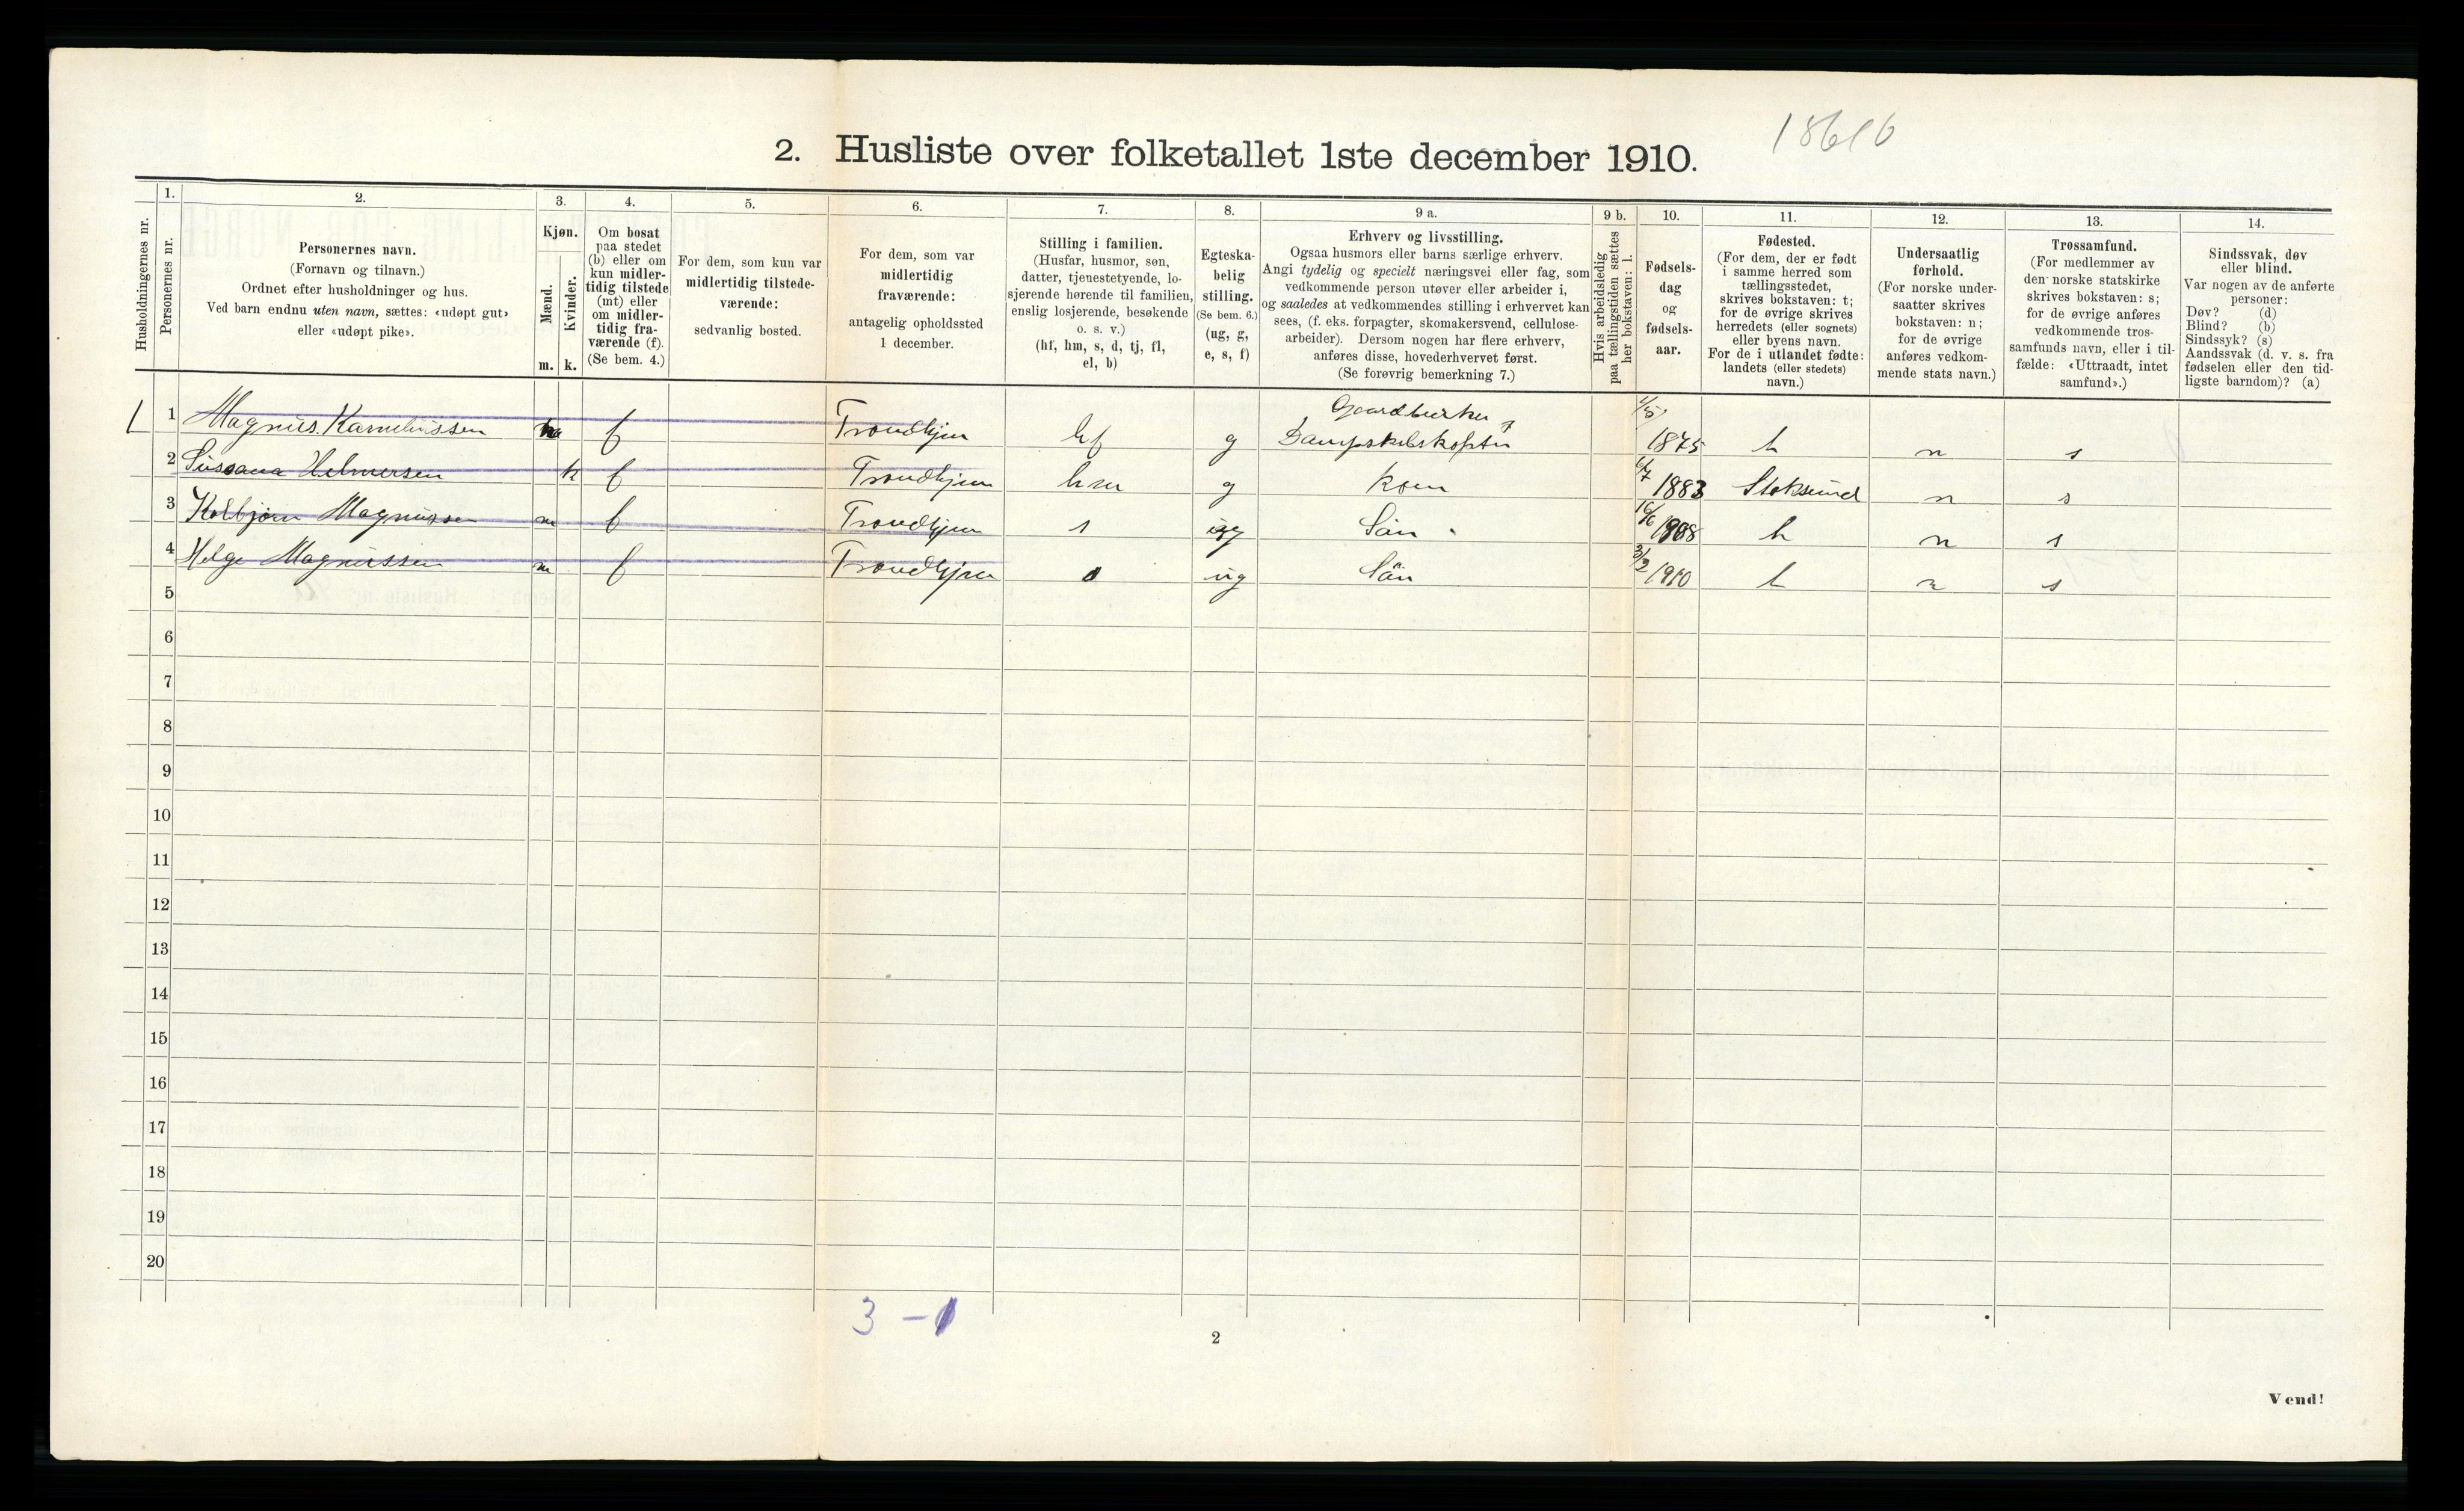 18616
2. Husliste over folketallet 1ste december 1910.
Husholdningernes nr.
1.
Personernes nr.
2.
Personernes navn.
(Fornavn og tilnavn.)
Ordnet efter husholdninger og hus.
Ved barn endnu uten navn, sættes: «udøpt gut»
eller «udøpt pike».
3.
Kjøn.
Mænd.
Kvinder.
m. k.
4.
Om bosat
paa stedet
(b) eller om
kun midler-
tidig tilstede
(mt) eller
om midler-
tidig fra-
værende (f).
(Se bem. 4.)
5.
For dem, som kun var
midlertidig tilstede-
værende:
sedvanlig bosted.
6.
For dem, som var
midlertidig
fraværende:
antagelig opholdssted
1 december.
7.
Stilling i familien.
(Husfar, husmor, søn,
datter, tjenestetyende, lo-
sjerende hørende til familien,
enslig losjerende, besøkende
o. s. v.)
(hf, hm, s, d, tj, fl,
el, b)
8.
Egteska-
belig
stilling.
(Se bem. 6.)
(ug, g,
e, s, f)
9 a.
Erhverv og livsstilling.
Ogsaa husmors eller barns særlige erhverv.
Angi tydelig og specielt næringsvei eller fag, som
vedkommende person utøver eller arbeider i,
og saaledes at vedkommendes stilling i erhvervet kan
sees, (f. eks. forpagter, skomakersvend, cellulose-
arbeider). Dersom nogen har flere erhverv,
anføres disse, hovederhvervet først.
(Se forøvrig bemerkning 7.)
9 b.
Hvis arbeidsledig
paa tællingstiden sættes
her bokstaven: l.
10.
Fødsels-
dag
og
fødsels-
aar.
11.
Fødested.
(For dem, der er født
i samme herred som
tællingsstedet,
skrives bokstaven: t;
for de øvrige skrives
herredets (eller sognets)
eller byens navn.
For de i utlandet fødte:
landets (eller stedets)
navn.)
12.
Undersaatlig
forhold.
(For norske under-
saatter skrives
bokstaven: n;
for de øvrige
anføres vedkom-
mende stats navn.)
13.
Trossamfund.
(For medlemmer av
den norske statskirke
skrives bokstaven: s;
for de øvrige anføres
vedkommende tros-
samfunds navn, eller i til-
fælde: «Uttraadt, intet
samfund».)
14.
Sindssvak, døv
eller blind.
Var nogen av de anførte
personer:
Døv? (d)
Blind? (b)
Sindssyk? (s)
Aandssvak (d. v. s. fra
fødselen eller den tid-
ligste barndom)? (a)
1 1 Magnus Kornelinssen m f Trondhjem hf g 1/5 1875 t n s
2 Sussana Helmersen k f Trondhjem hm g Kone 6/7 1883 Stoksund n s
3 Kolbjørn Magnussen m f Trondhjem s ug Sön 16/6 1908 t n s
4 Helge Magnussen m f Trondhjem s ug Sön 3/2 1910 t n s
5
6
7
8
9
10
11
12
13
14
15
16
17
18
19
20
3 – 1
2
Vend!